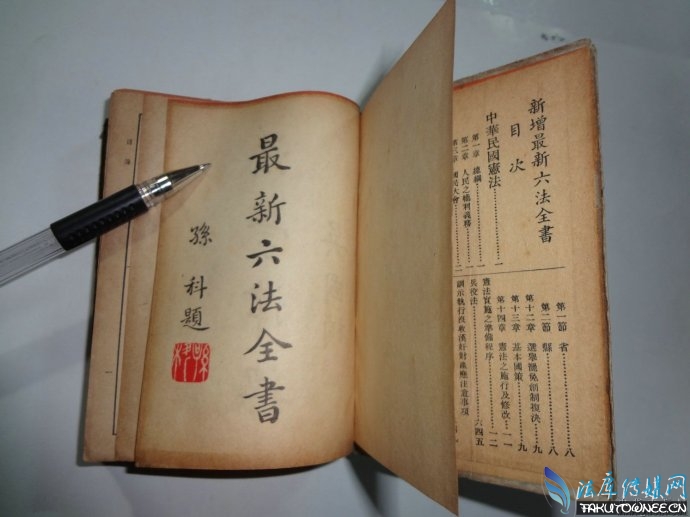 最新六法全書
孫科題
新增最新六法全書
目次
中華民國憲法……一
第一章 總綱……一
第二章 人民之權利義務……一
第三章 國民大會……二
第一節 省……八
第二節 縣……八
第十二章 選舉罷免創制複決……九
第十三章 基本國策……九
第十四章 憲法之施行及修改……一一
憲法實施之準備程序……一二
兵役法……六四五
法库传媒网
TAKUTOWNEE.CN